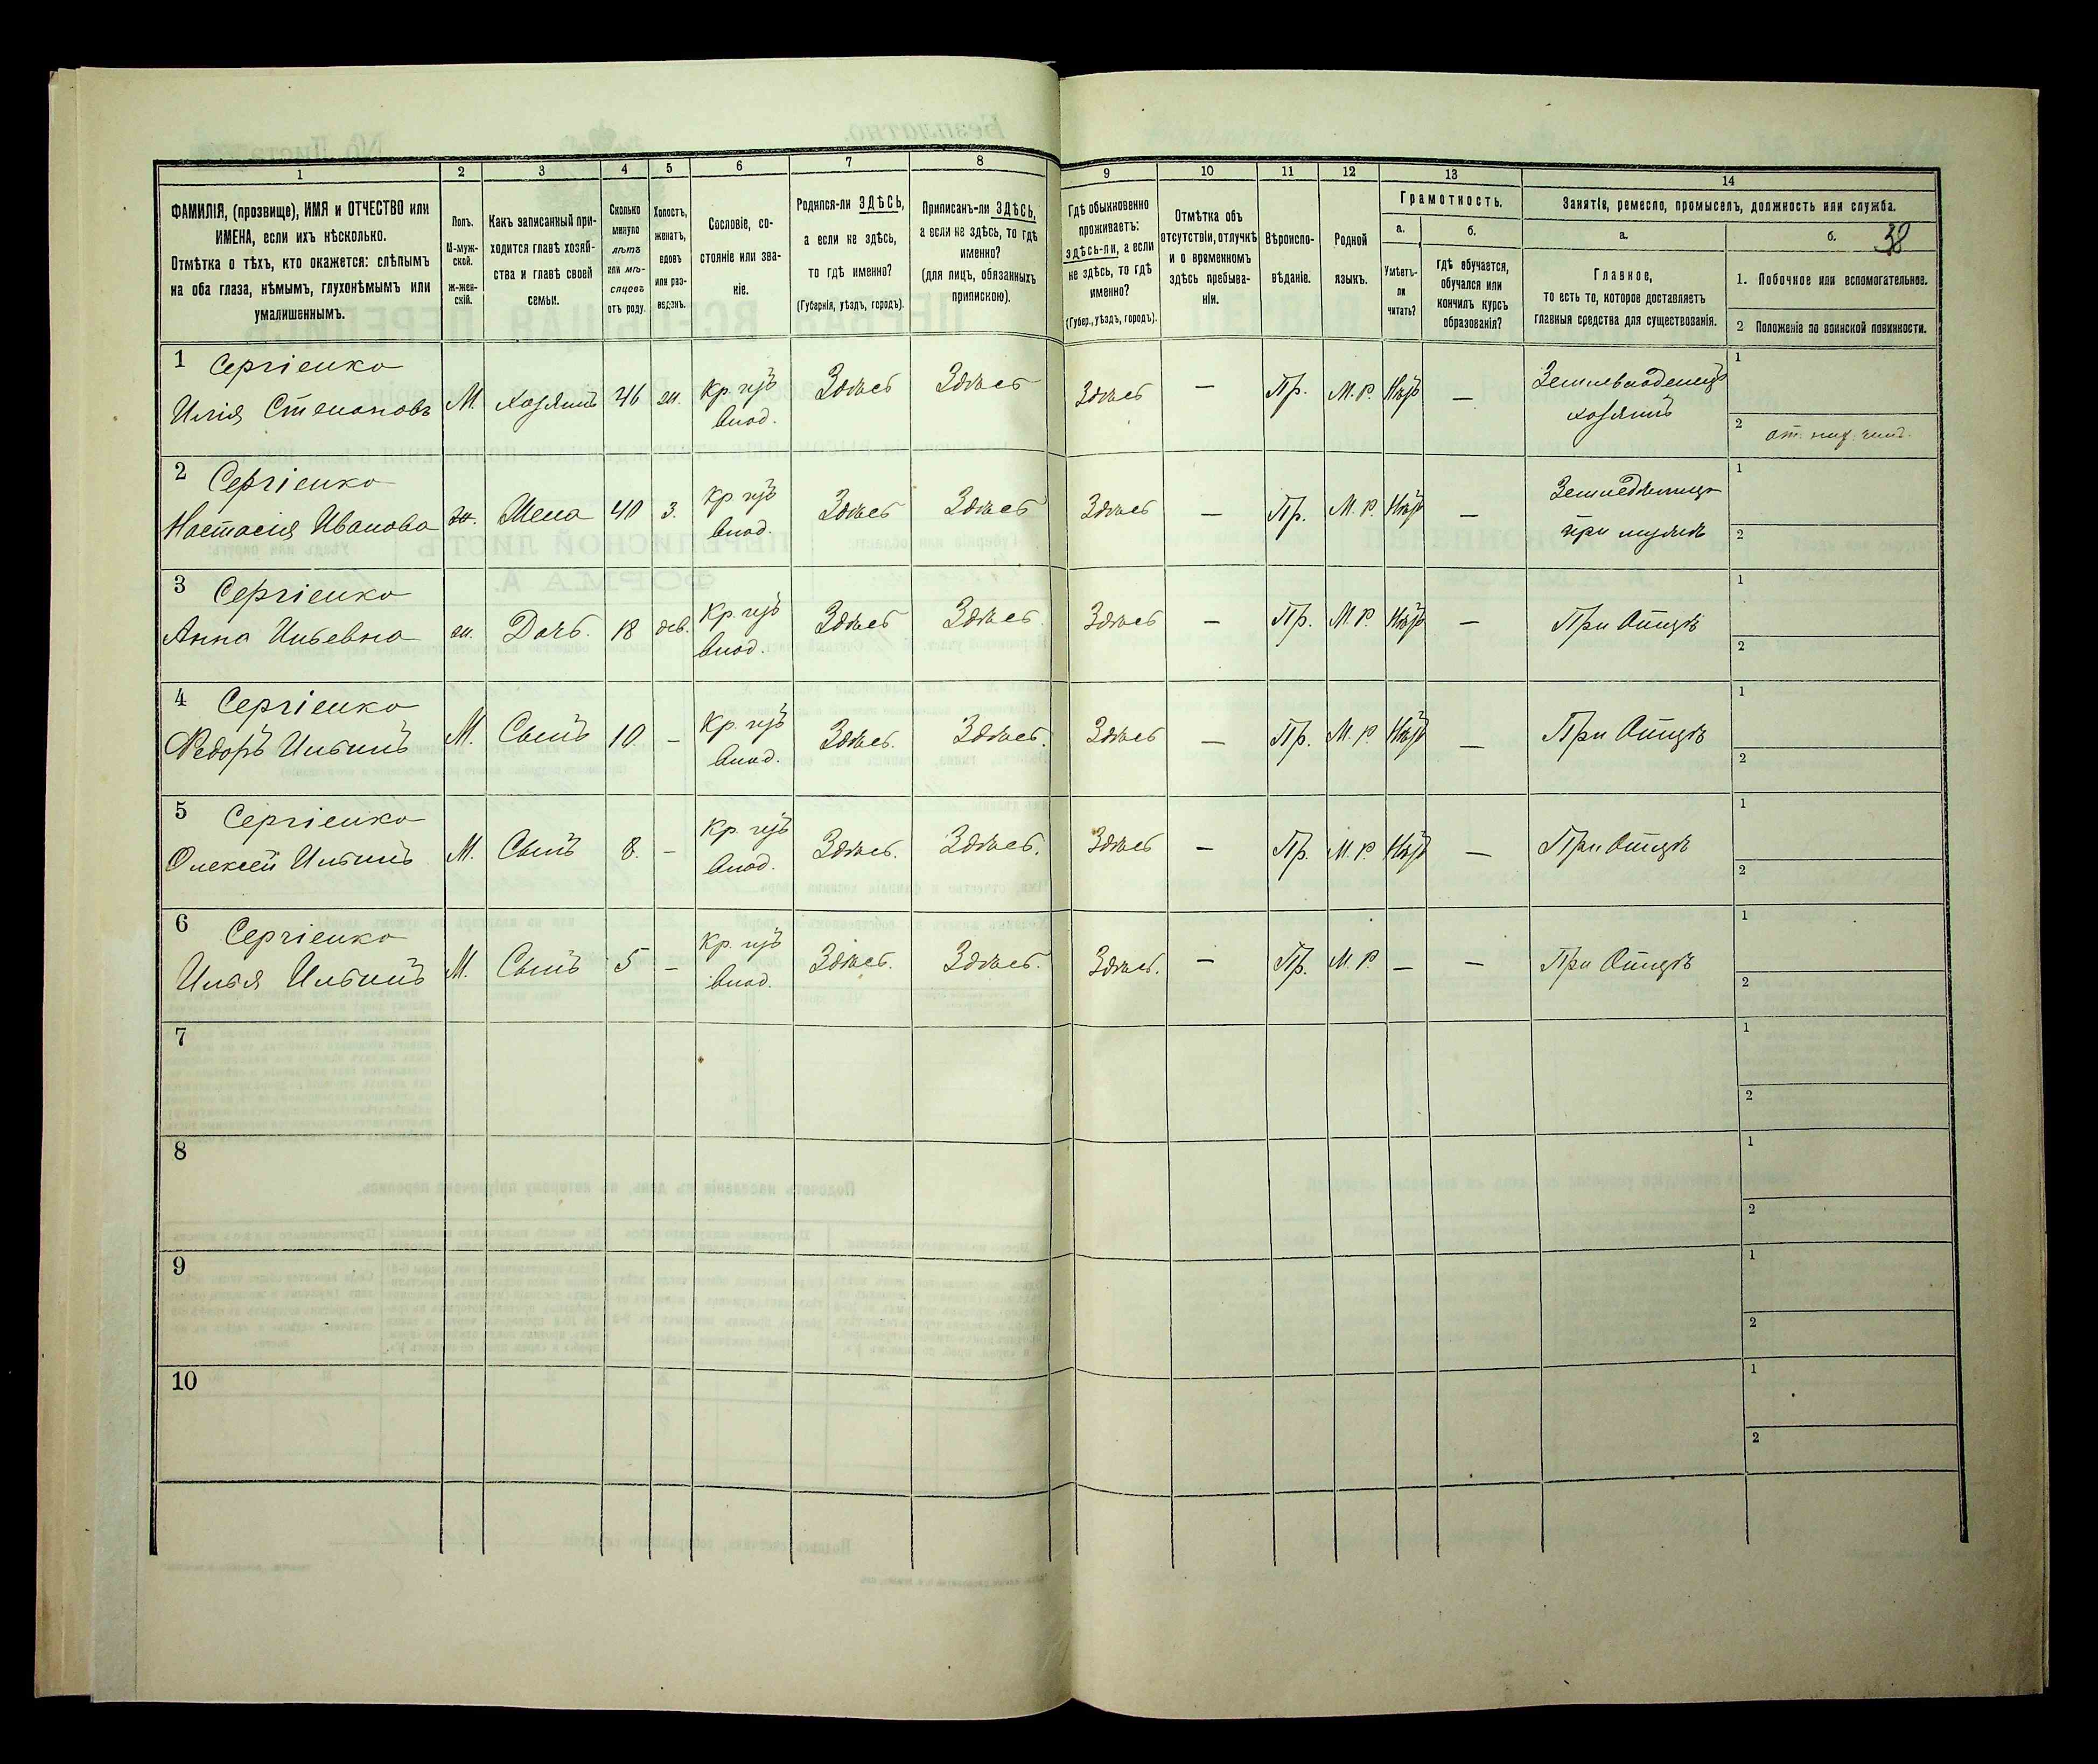 38
1 2 3 4 5 6 7 8 9 10 11 12 13 14
ФАМИЛІЯ, (прозвище), ИМЯ и ОТЧЕСТВО или
ИМЕНА, если ихъ нѣсколько.
Отмѣтка о тѣхъ, кто окажется: слѣпымъ
на оба глаза, нѣмымъ, глухонѣмымъ или
умалишеннымъ.
Полъ.
М-муж-
ской.
ж-жен-
скій.
Какъ записанный при-
ходится главѣ хозяй-
ства и главѣ своей
семьи.
Сколько
минуло
лѣтъ
или мѣ-
сяцевъ
отъ роду.
Холостъ,
женатъ,
вдовъ
или раз-
веденъ.
Сословіе, со-
стояніе или зва-
ніе.
Родился-ли ЗДѢСЬ,
а если не здѣсь,
то гдѣ именно?
(Губернія, уѣздъ, городъ).
Приписанъ-ли ЗДѢСЬ,
а если не здѣсь, то гдѣ
именно?
(для лицъ, обязанныхъ
припискою).
Гдѣ обыкновенно
проживаетъ:
здѣсь-ли, а если
не здѣсь, то гдѣ
именно?
(Губер., уѣздъ, городъ).
Отмѣтка объ
отсутствіи, отлучкѣ
и о временномъ
здѣсь пребыва-
ніи.
Вѣроиспо-
вѣданіе.
Родной
языкъ.
Грамотность.
а.
Умѣетъ-
ли
читать?
б.
Гдѣ обучается,
обучался или
кончилъ курсъ
образованія?
Занятіе, ремесло, промыселъ, должность или служба.
а.
Главное,
то есть то, которое доставляетъ
главныя средства для существованія.
б.
1. Побочное или вспомогательное.
2 Положеніе по воинской повинности.
1 Сергіенко
Илія Степановъ М. Хозяинъ 46 ж. Кр. изъ влад. Здѣсь Здѣсь Здѣсь — Пр. М.Р. Нѣтъ — Землевладелецъ хозяинъ 1
2 от. ниж. чинъ.
2 Сергіенко
Настасія Иванова ж. Жена 40 з. Кр. изъ влад. Здѣсь Здѣсь Здѣсь — Пр. М.Р. Нѣтъ — при мужѣ 1
2
3 Сергіенко
Анна Ильевна ж. Дочь. 18 дѣв. Кр. изъ влад. Здѣсь Здѣсь. Здѣсь — Пр. М.Р. Нѣтъ — При Отцѣ 1
2
4 Сергіенко
Федоръ Ильинъ М. Сынъ 10 — Кр. изъ влад. Здѣсь. Здѣсь. Здѣсь — Пр. М.Р. Нѣтъ — При Отцѣ 1
2
5 Сергіенко
Олексей Ильинъ М. Сынъ 8. — Кр. изъ влад. Здѣсь. Здѣсь. Здѣсь — Пр. М.Р. Нѣтъ — При Отцѣ 1
2
6 Сергіенко
Илья Ильинъ М. Сынъ 5 — Кр. изъ влад. Здѣсь. Здѣсь. Здѣсь. — Пр. М.Р. — — При Отцѣ 1
2
7 1
2
8 1
2
9 1
2
10 1
2